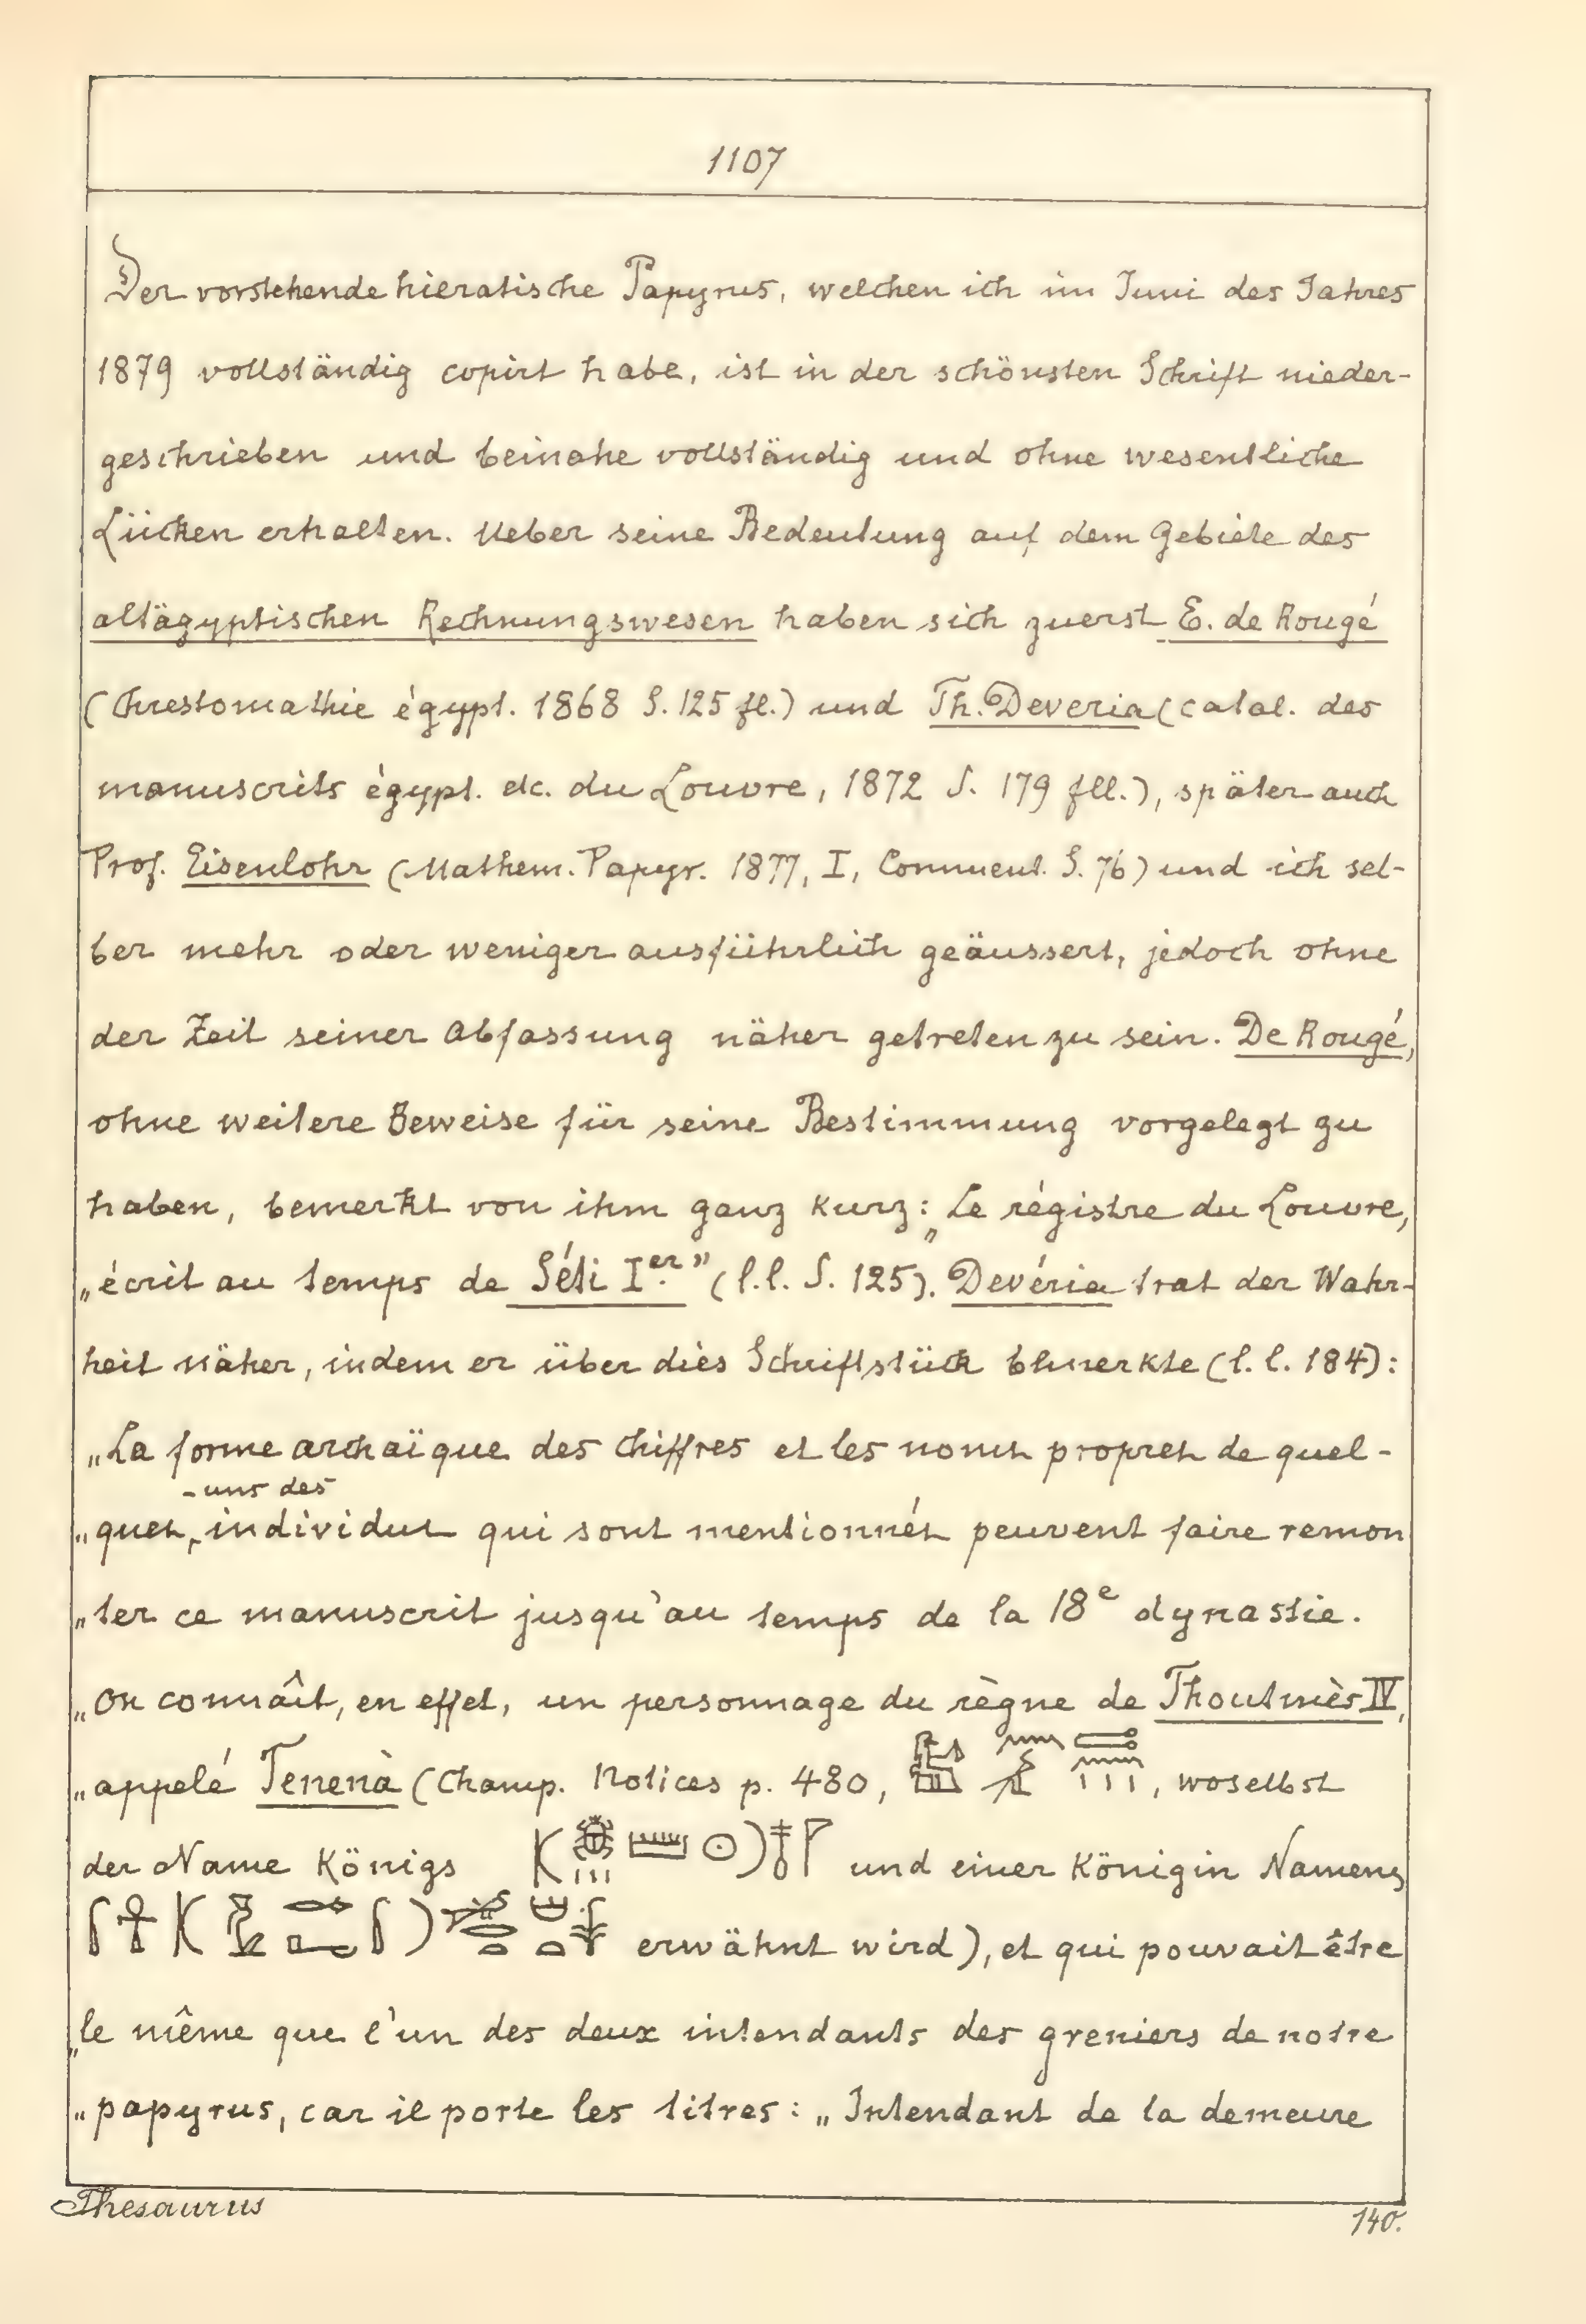 1107
Der vorstehende hieratische Papyrus, welchen ich im Juni des Jahres
1879 vollständig copirt habe, ist in der schönsten Schrift nieder-
geschrieben und beinahe vollständig und ohne wesentliche
Lücken erhalten. Ueber seine Bedeutung auf dem Gebiete des
altägyptischen Rechnungswesen haben sich zuerst E. de Rougé
(Chrestomathie égypt. 1868 S. 125 fl.) und Th. Deveria (catal. des
manuscrits égypt. etc. du Louvre, 1872 S. 179 fll.), später auch
Prof. Eisenlohr (Mathem. Papyr. 1877, I, Comment. S. 76) und ich sel-
ber mehr oder weniger ausführlich geäussert, jedoch ohne
der Zeit seiner Abfassung näher getreten zu sein. De Rougé,
ohne weitere Beweise für seine Bestimmung vorgelegt zu
haben, bemerkt von ihm ganz kurz: „Le régistre du Louvre,
„écrit au temps de Séti Ier.” (l.l. S. 125). Devéria trat der Wahr-
heit näher, indem er über dies Schriftstück bemerkte (l.l. 184):
„La forme archaïque des chiffres et les noms propres de quel-
-uns des
„ques, individus qui sont mentionnés peuvent faire remon
„ter ce manuscrit jusqu'au temps de la 18e dynastie.
„On connaît, en effet, un personnage du règne de Thoutmès IV,
„appelé Tenenà (Champ. Notices p. 480, , woselbst
der Name Königs und einer Königin Namens
erwähnt wird), et qui pouvait être
„le même que l'un des deux intendants des greniers de notre
„papyrus, car il porte les titres: „Intendant de la demeure
Thesaurus
140.